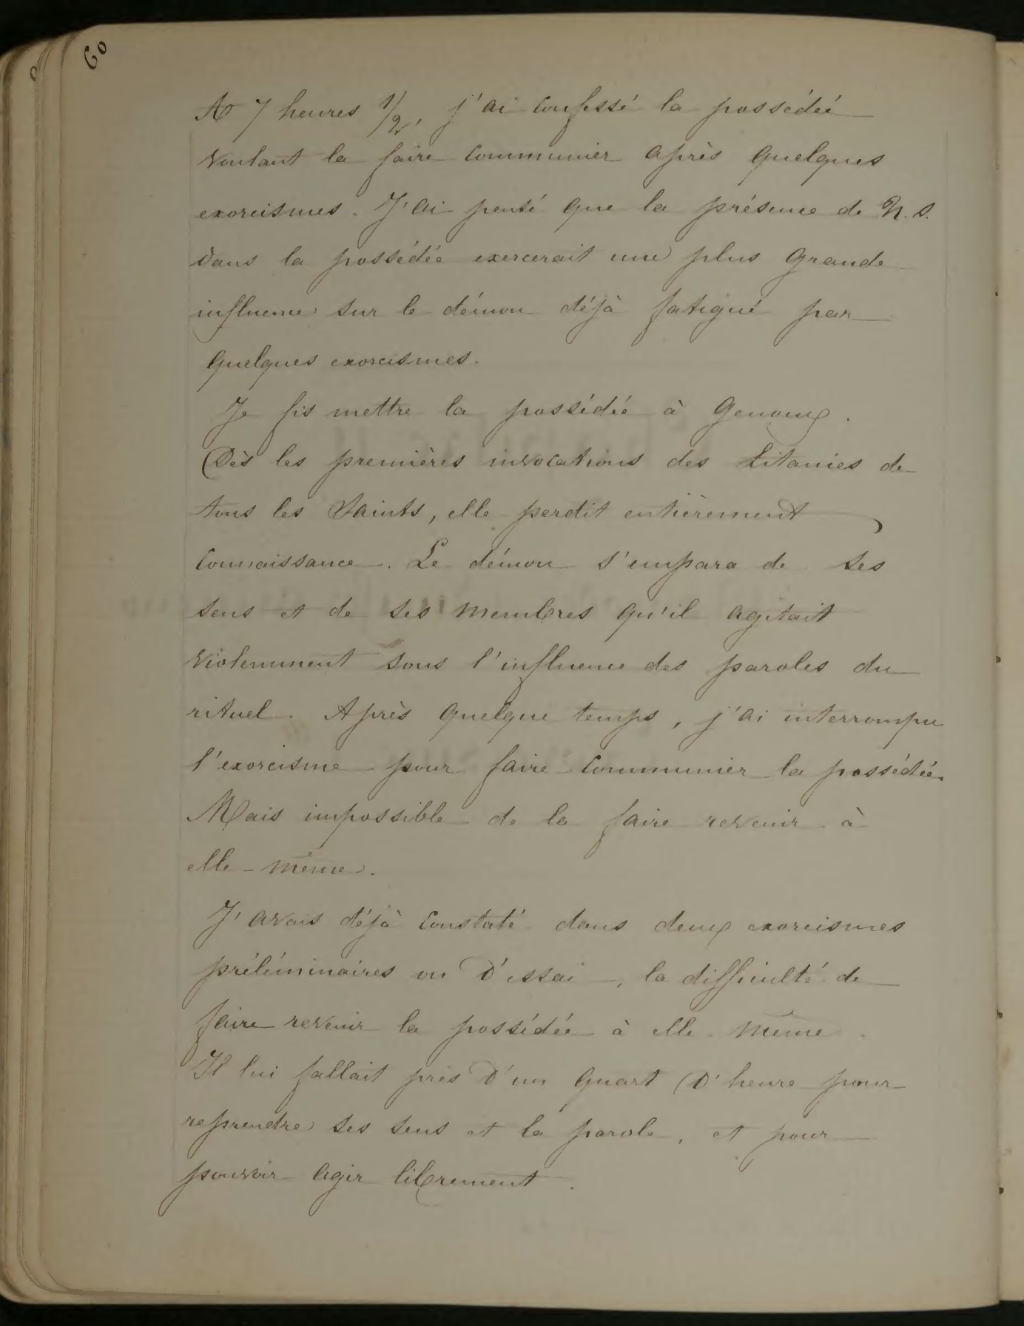 60
A 7 heures 1/2, j'ai confessé la possédée
voulant la faire communier après quelques
exorcismes. J'ai pensé que la présence de N. S.
dans la possédée exercerait une plus grande
influence sur le démon déjà fatigué par
quelques exorcismes.
Je fis mettre la possédée à genoux.
Dès les premières invocations des Litanies de
tous les Saints, elle perdit entièrement
connaissance. Le démon s'empara de ses
sens et de ses membres qu'il agitait
violemment sous l'influence des paroles du
rituel. Après quelque temps, j'ai interrompu
l'exorcisme pour faire communier la possédée.
Mais impossible de la faire revenir à
elle-même.
J'avais déjà constaté dans deux exorcismes
préliminaires ou d'essai, la difficulté de
faire revenir la possédée à elle-même.
Il lui fallait près d'un quart d'heure pour
reprendre ses sens et la parole, et pour
pouvoir agir librement.